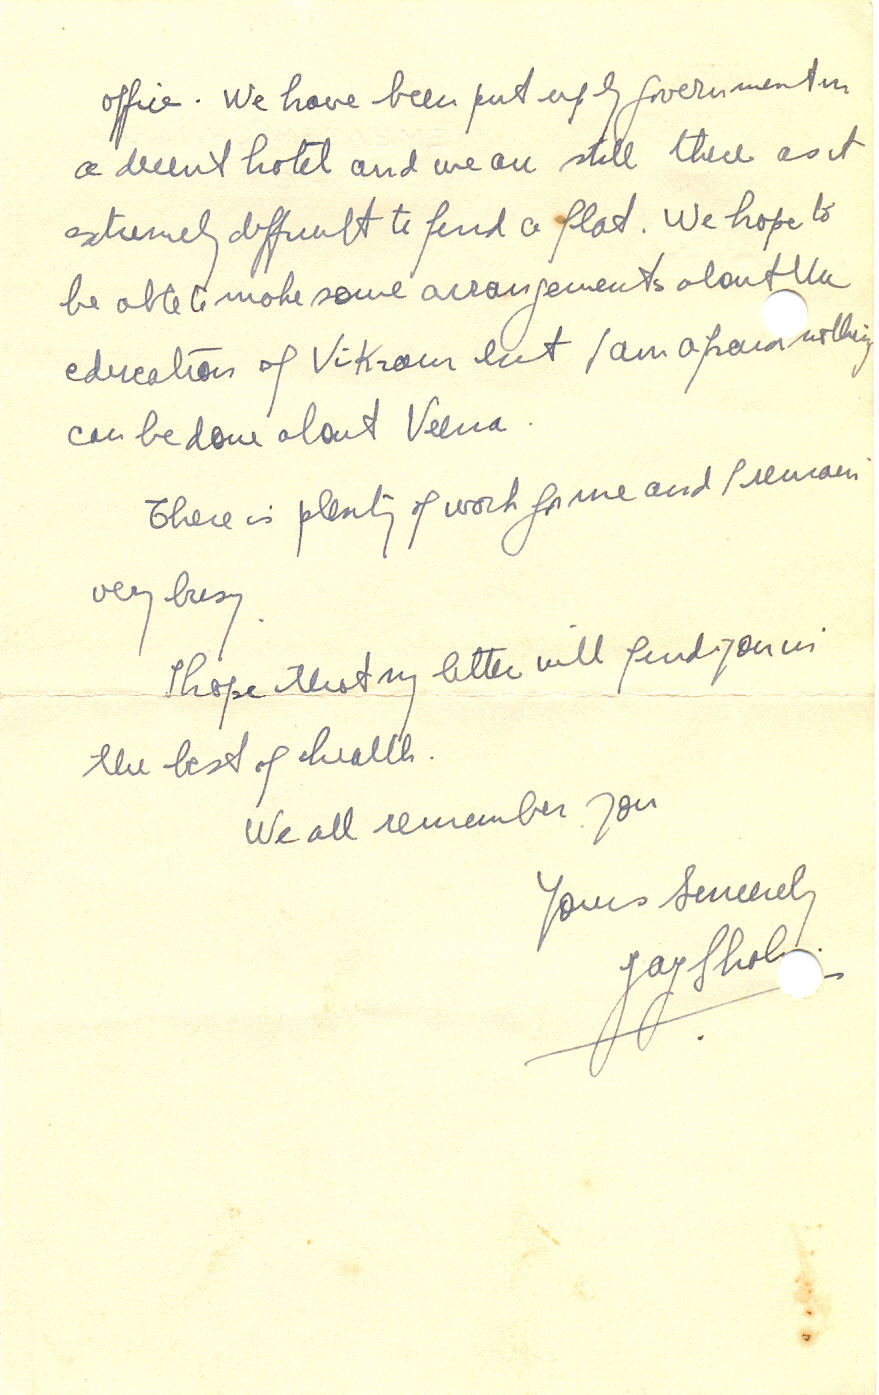 office. We have been put up by government in
a decent hotel and we are still there as it
extremely difficult to find a flat. We hope to
be able to make some arrangements about the
education of Vikram but I am afraid nothing
can be done about Veena.
There is plenty of work for me and I remain
very busy.
I hope that my letter will find you in
the best of health.
We all remember you
Yours Sincerely